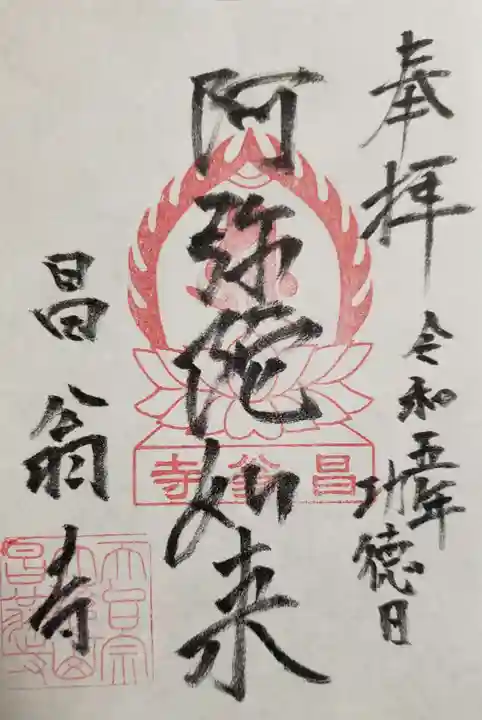 奉拝
令和五年
功徳日
阿弥陀如来
昌翁寺
昌翁寺
天台宗